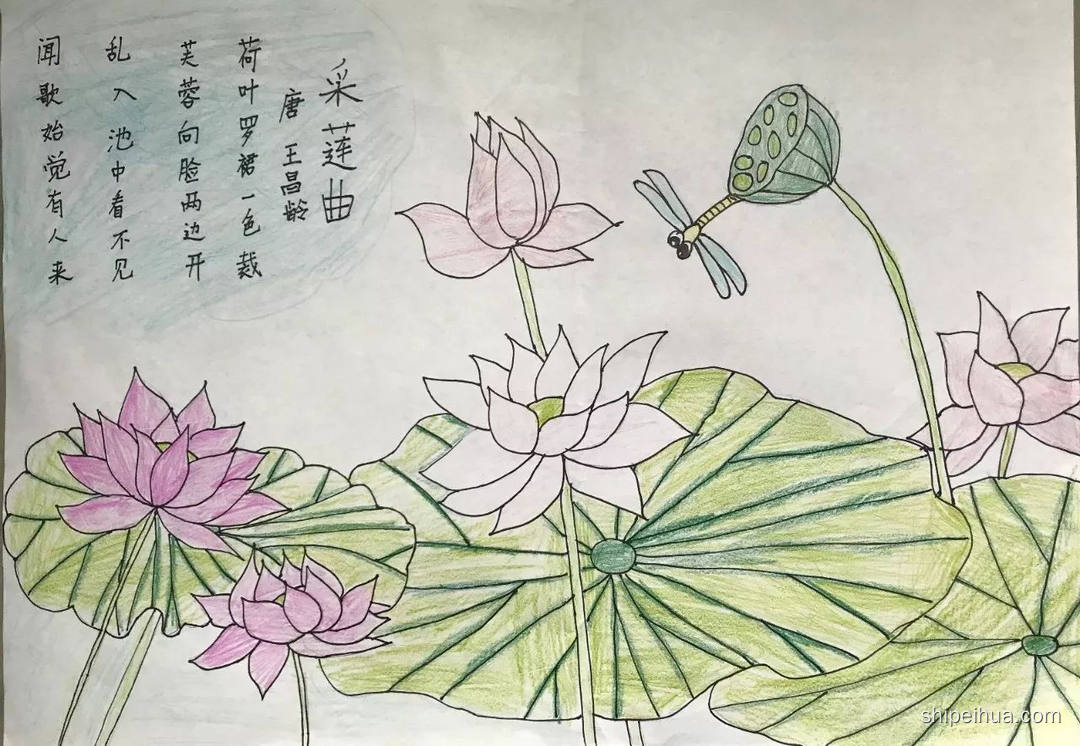 采莲曲
唐 王昌龄
荷叶罗裙一色裁
芙蓉向脸两边开
乱入池中看不见
闻歌始觉有人来
shipeihua.com